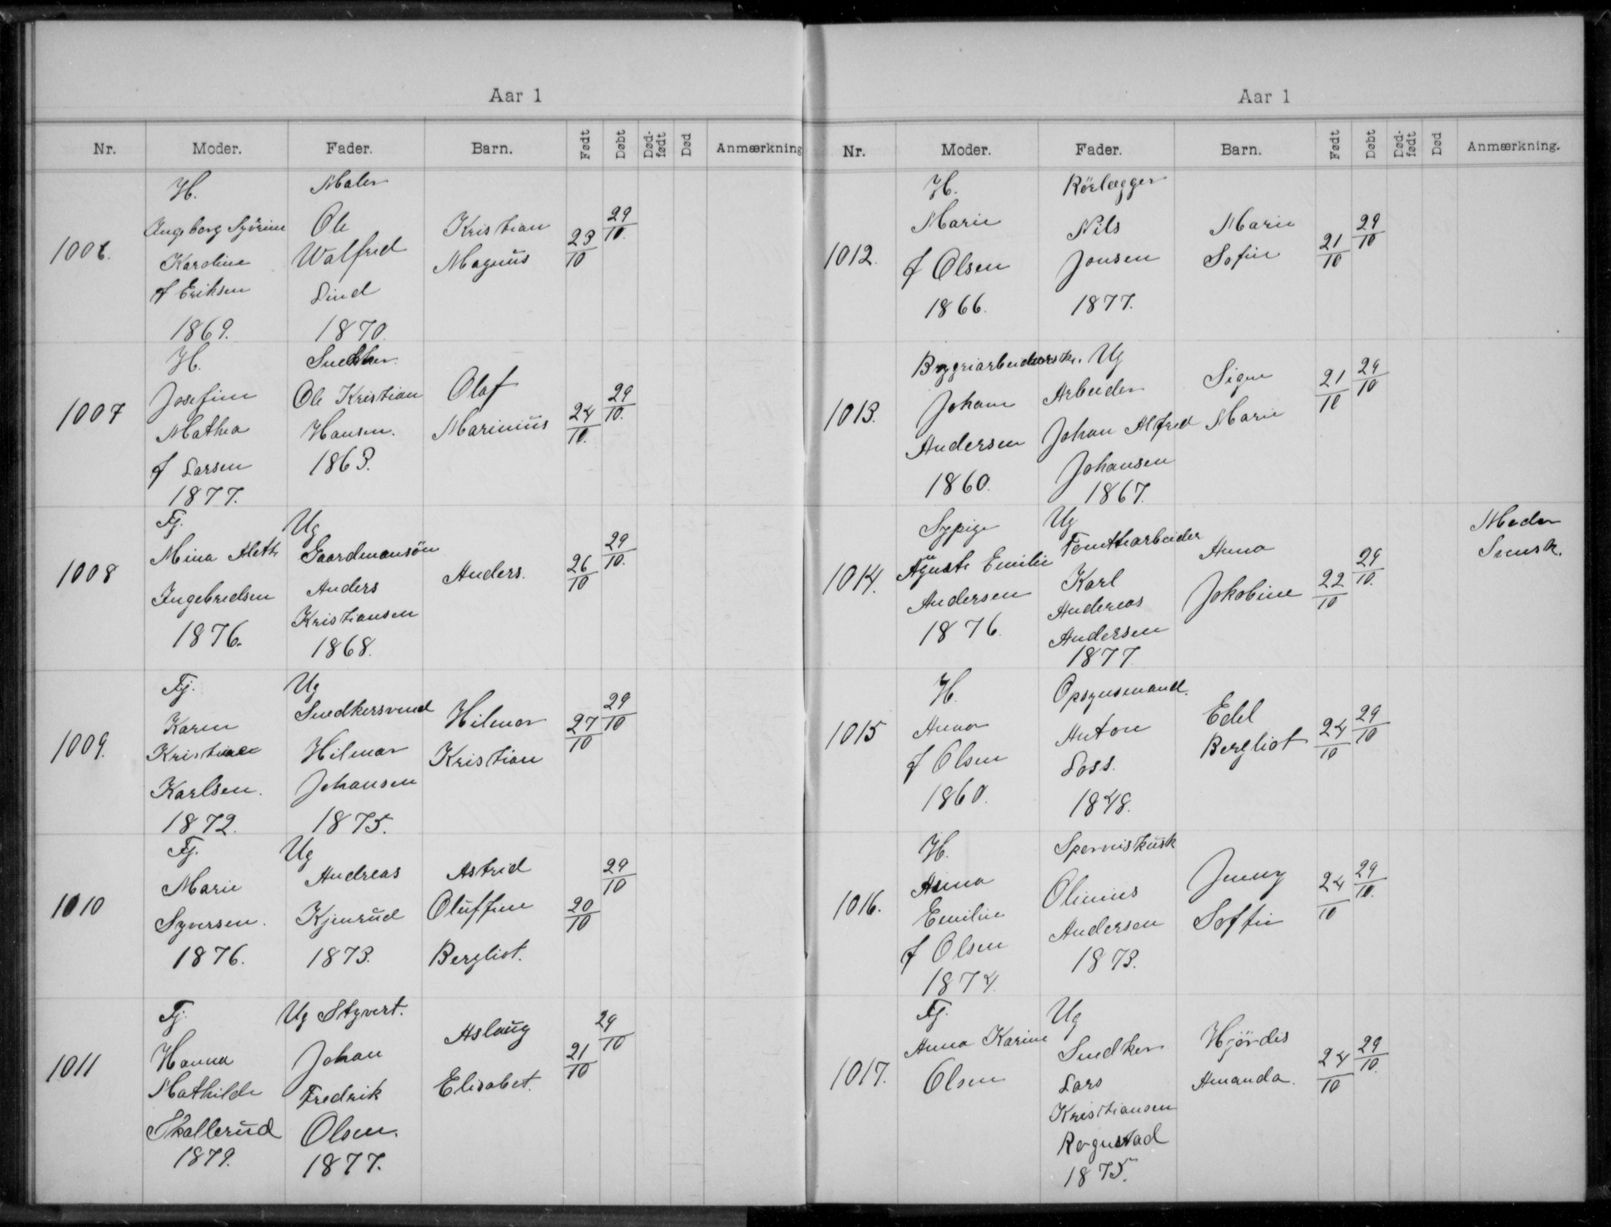 Aar 1
Nr. Moder. Fader. Barn. Født Døbt Død-født Død Anmærkning
1006. H. Maler
Ingeborg Syverine Ole Kristian 23/10 29/10.
Karoline Walfred Magnus
f Eriksen Lind
1869. 1870
1007 H. Snedker
Josefine Ole Kristian Olaf 24/10. 29/10.
Mathea Hansen. Marinius
f Larsen 1863.
1877.
1008 Fj. Ug
Mina Aleth Gaardmansøn Anders. 26/10 29/10.
Ingebredsen Anders
1876. Kristiansen
1868.
1009. Fj. Ug
Karen Snedkersvend Hilmar 27/10 29/10
Kristiane Hilmar Kristian
Karlsen. Johansen
1872. 1875.
1010 Fj. Ug
Marie Andreas Astrid 20/10 29/10
Syversen. Kjenrud Oluffine
1876. 1873. Bergliot.
1011 Fj. Ug Styvert.
Hanna Johan Aslaug 21/10 29/10
Mathilde Fredrik Elisabet.
Skallerud Olsen.
1879. 1877.
Aar 1
Nr. Moder. Fader. Barn. Født Døbt Død-født Død Anmærkning.
1012. H. Rörlægger
Marie Nils Marie 21/10 29/10
f Olsen Jonsen Sofie
1866. 1877.
1013. Bryggriarbeiderske. Ug
Johane Arbeider Signe 21/10 29/10
Andersen Johan Alfred Marie
1860. Johansen
1867.
1014. Sypige Ug Moder
Aguste Emilie Tomtearbeider Anna 22/10 29/10. Svensk.
Andersen Karl Jakobine
1876. Andreas
Andersen
1877
1015 H. Opsynsmand.
Anna Anton Edel 24/10 29/10
f Olsen Loss. Bergliot
1860. 1848.
1016. H. Sporveiskusk
Anna Olinius Jenny 24/10 29/10.
Emilie Andersen Soffie
f Olsen 1873.
1874.
1017. Fj. Ug
Anna Karine Snedker Hjørdis 24/10 29/10.
Olsen Lars Amanda.
Kristiansen
Rognstad
1875.